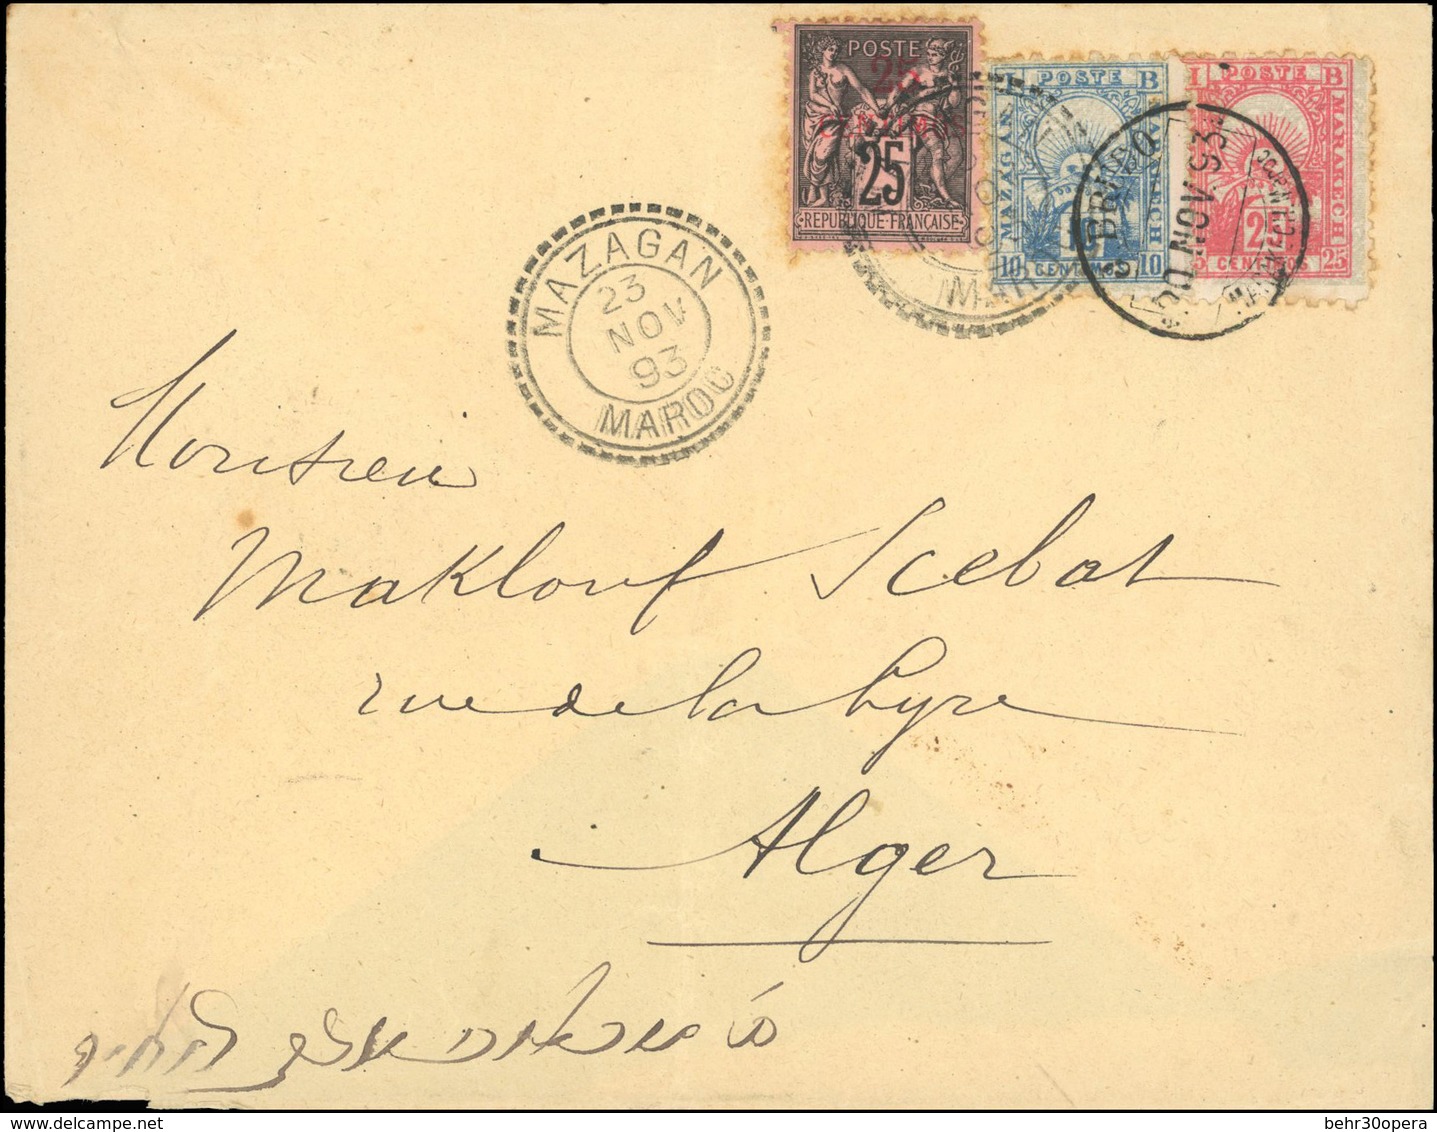 POSTE
25
25
REPUBLIQUE FRANÇAISE
POSTE B
MAZAGAN
MARAKECH
10 CENTIMOS 10
I POSTE B
MARAKECH
25
CENTIMOS 25
20 NOV. 93
MAZAGAN
23
NOV
93
MAROC
Monsieur
Maklouf Scebat
rue de la Lyre
Alger
behr30opera